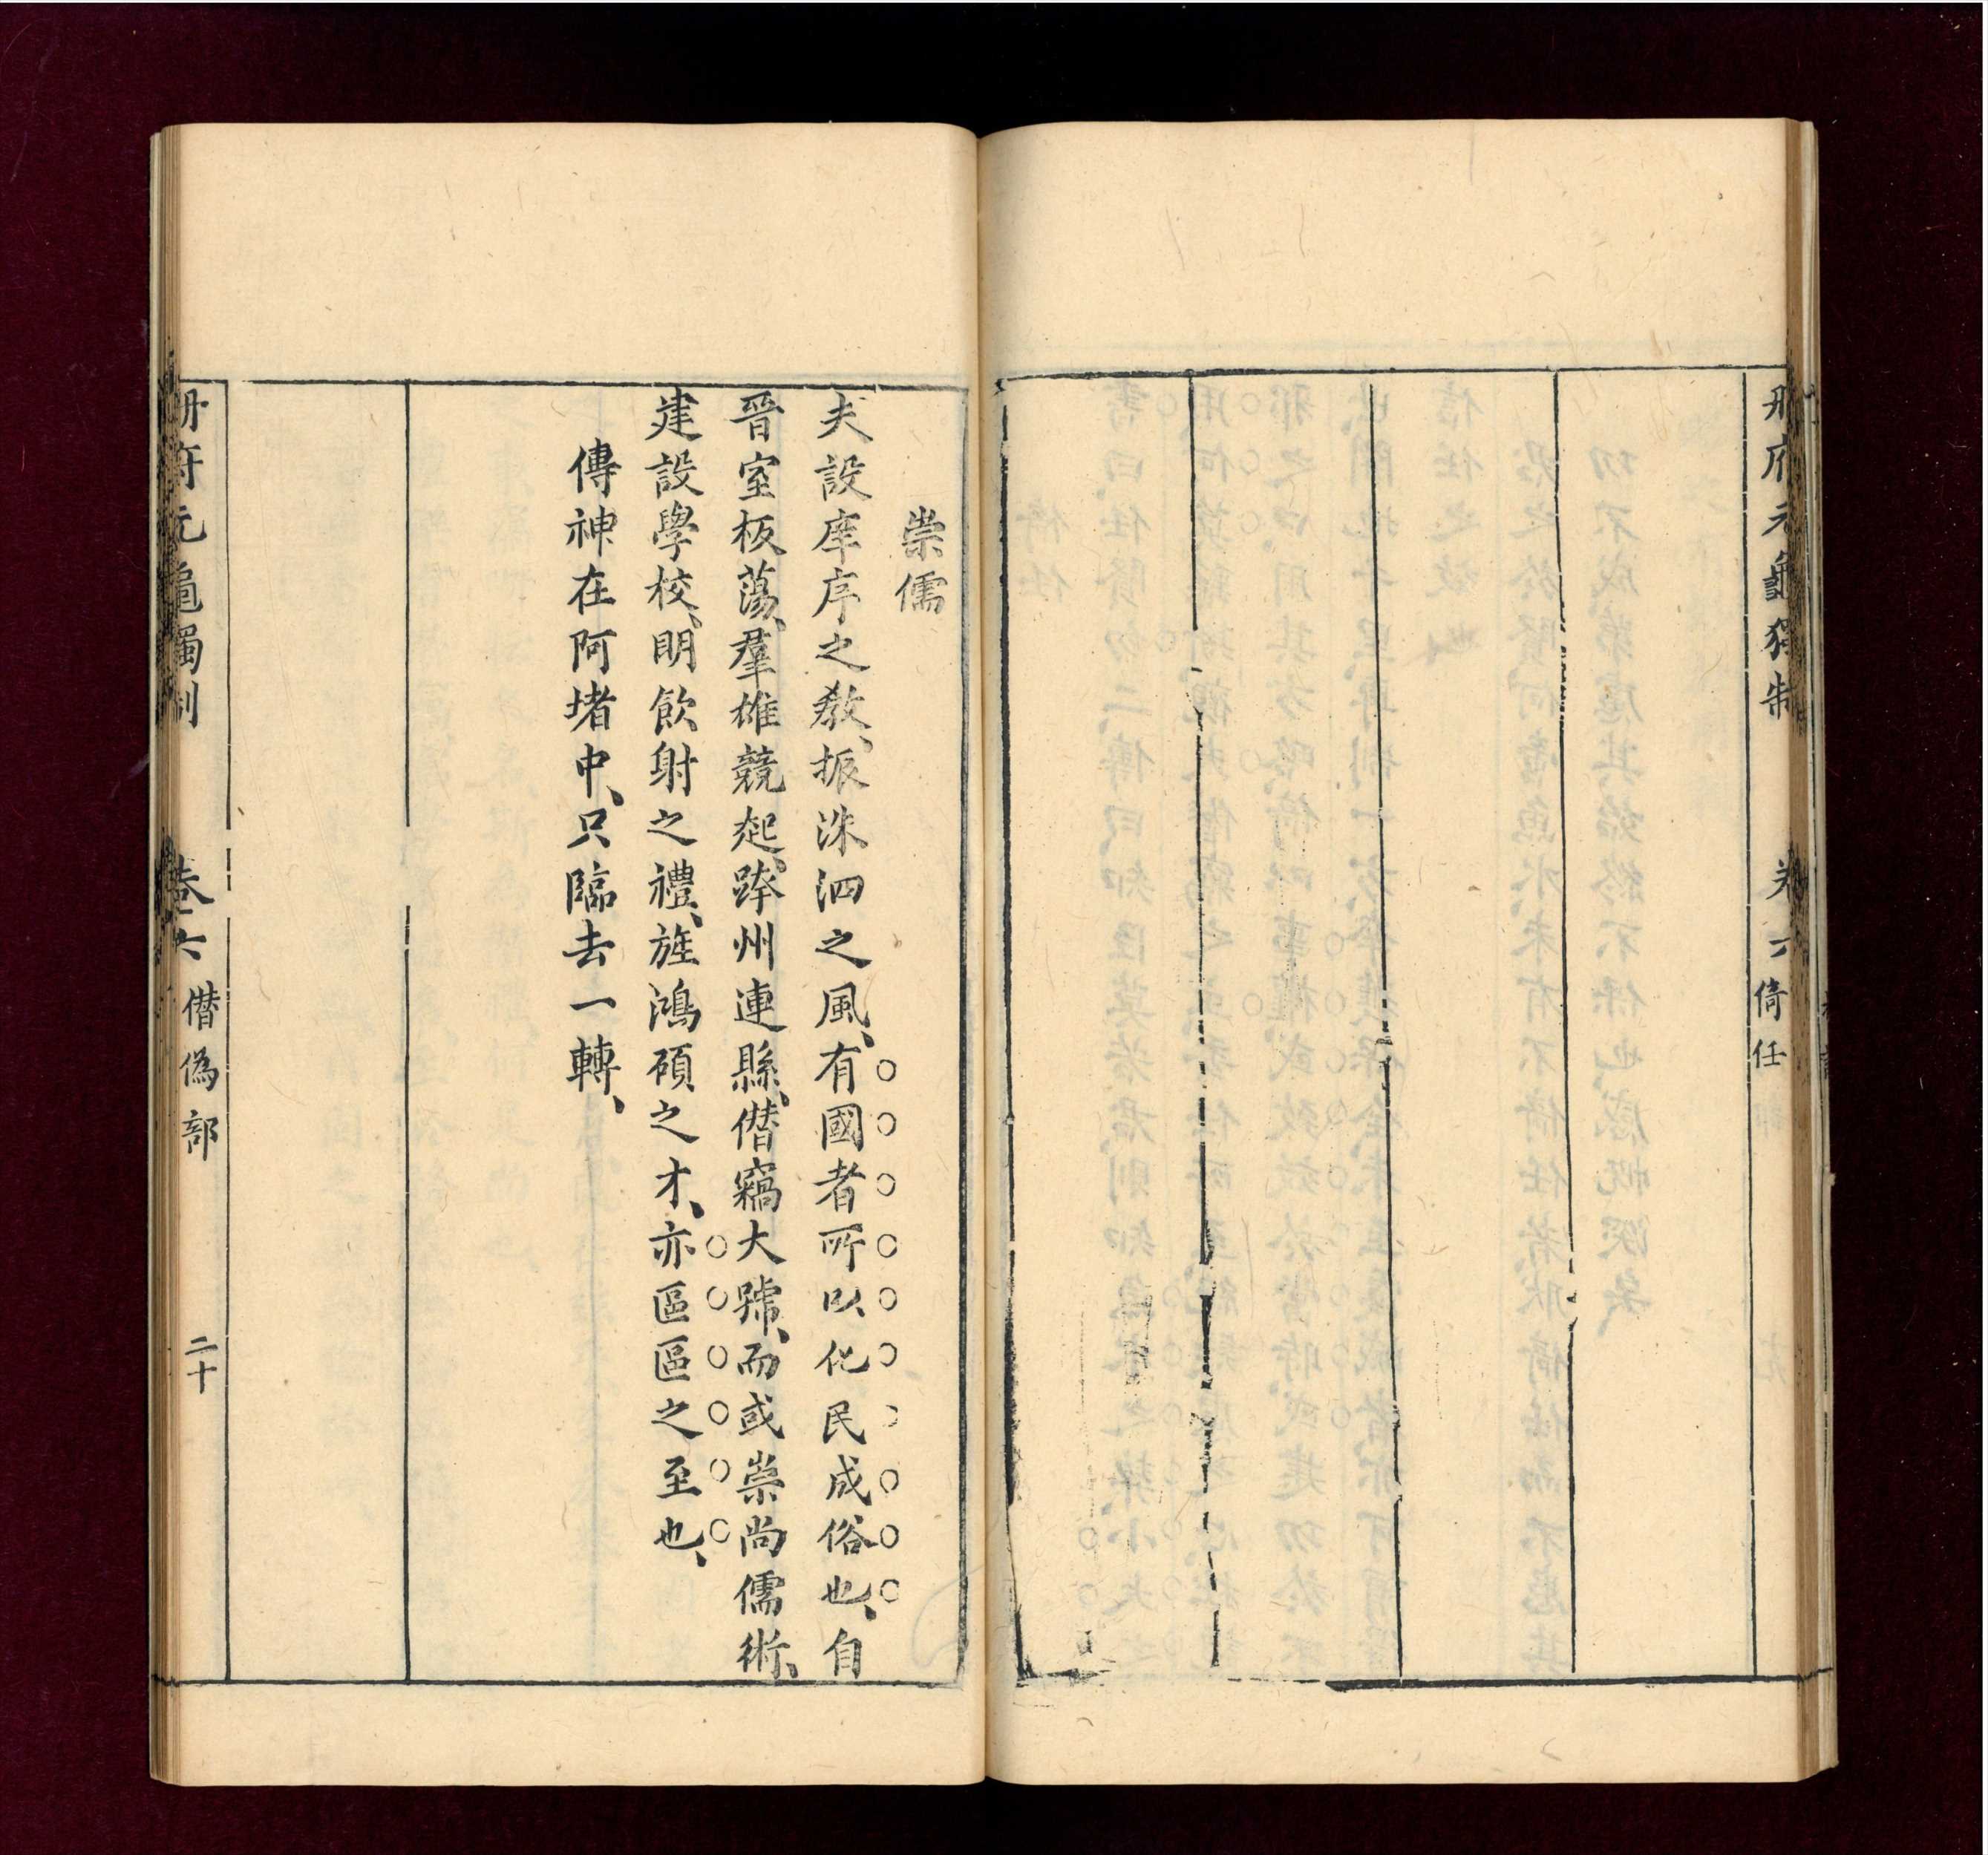 冊府元龜獨制
倚任
崇儒
夫設庠序之敎、振洙泗之風、有國者所以化民成俗也、自
晉室板蕩、羣雄競起、跨州連縣、僣竊大號、而或崇尚儒術、
建設學校、明飮射之禮、旌鴻碩之才、亦區區之至也、
傳神在阿堵中、只臨去一轉、
冊府元龜獨制
卷六
僣偽部
二十